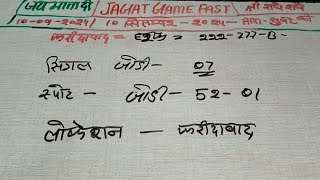 जय माता दी JAGAT GAME FAST श्री राधे राधे
10-09-2024 / 10 सितम्बर - 2024 -
फरीदाबाद = = 222-277-B-
सिंगल जोड़ी - 07
स्पोट - जोड़ी - 52-01
लोकेशन - फरीदाबाद